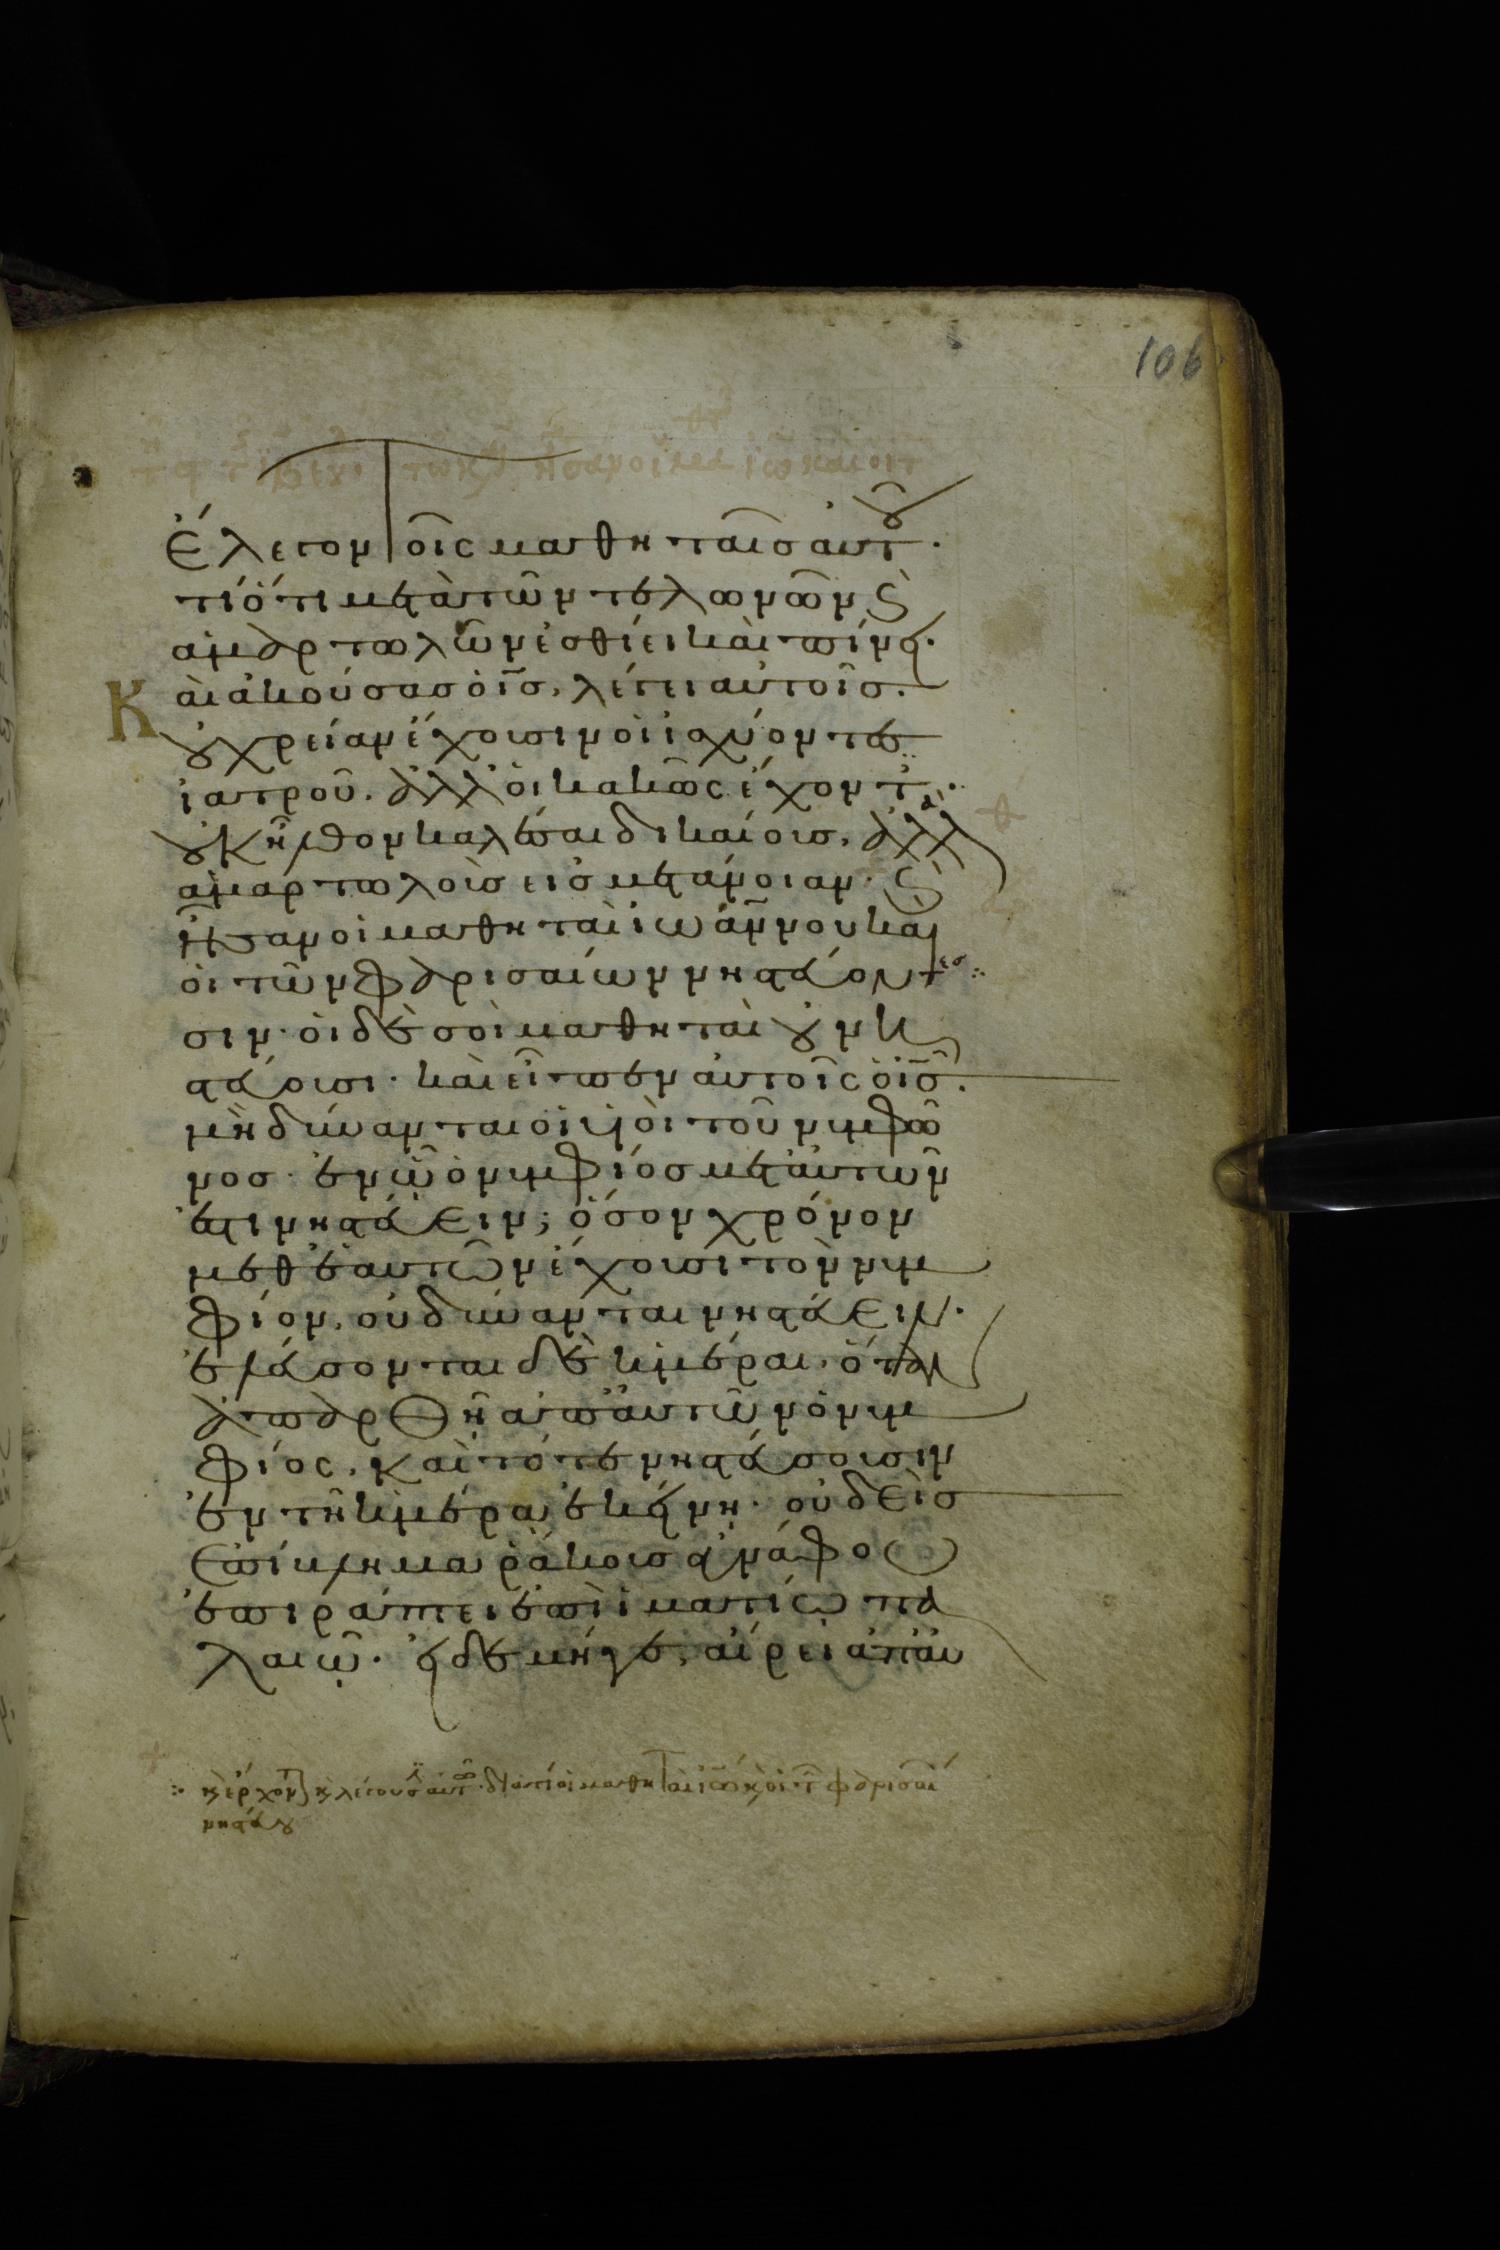 106
ἔλεγον τοῖς μαθηταῖς αὐτοῦ.
τί ὅτι μετὰ τῶν τελωνῶν καὶ
ἁμαρτωλῶν ἐσθίει καὶ πίνει.
Καὶ ἀκούσας ὁ ις, λέγει αὐτοῖς.
οὐ χρείαν ἔχουσιν οἱ ἰσχύοντες
ἰατροῦ. ἀλλ' οἱ κακῶς ἔχοντ.
οὐκ ἦλθον καλέσαι δικαίους, ἀλλὰ
ἁμαρτωλοὺς εἰς μετάνοιαν. καὶ
ἦσαν οἱ μαθηταὶ ἰωάννου καὶ
οἱ τῶν φαρισαίων νηστεύοντες
σιν. οἱ δὲ σοὶ μαθηταὶ οὐ νη
στεύουσι. καὶ εἶπεν αὐτοῖς ὁ ις.
μὴ δύνανται οἱ υἱοὶ τοῦ νυμφῶ
νος. ἐν ᾧ ὁ νυμφίος μετ' αὐτῶν
ἐστι νηστεύειν; ὅσον χρόνον
μεθ' ἑαυτῶν ἔχουσι τὸν νυμ
φίον, οὐ δύνανται νηστεύειν.
ἐλεύσονται δὲ ἡμέραι, ὅταν
ἀπαρθῇ ἀπ' αὐτῶν ὁ νυμ
φίος, καὶ τότε νηστεύσουσιν
ἐν τῇ ἡμέρᾳ ἐκείνῃ. οὐδεὶς
ἐπίβλημα ῥάκους ἀγνάφου
ἐπιράπτει ἐπὶ ἱματίῳ πα
λαιῷ. εἰ δὲ μήγε, αἴρει ἀπ' αὐ
καὶ ἔρχοντ καὶ λέγουσιν αὐτῶ. διατί οἱ μαθηταὶ ἰω καὶ οἱ τ φαρισαί
νηστεύου